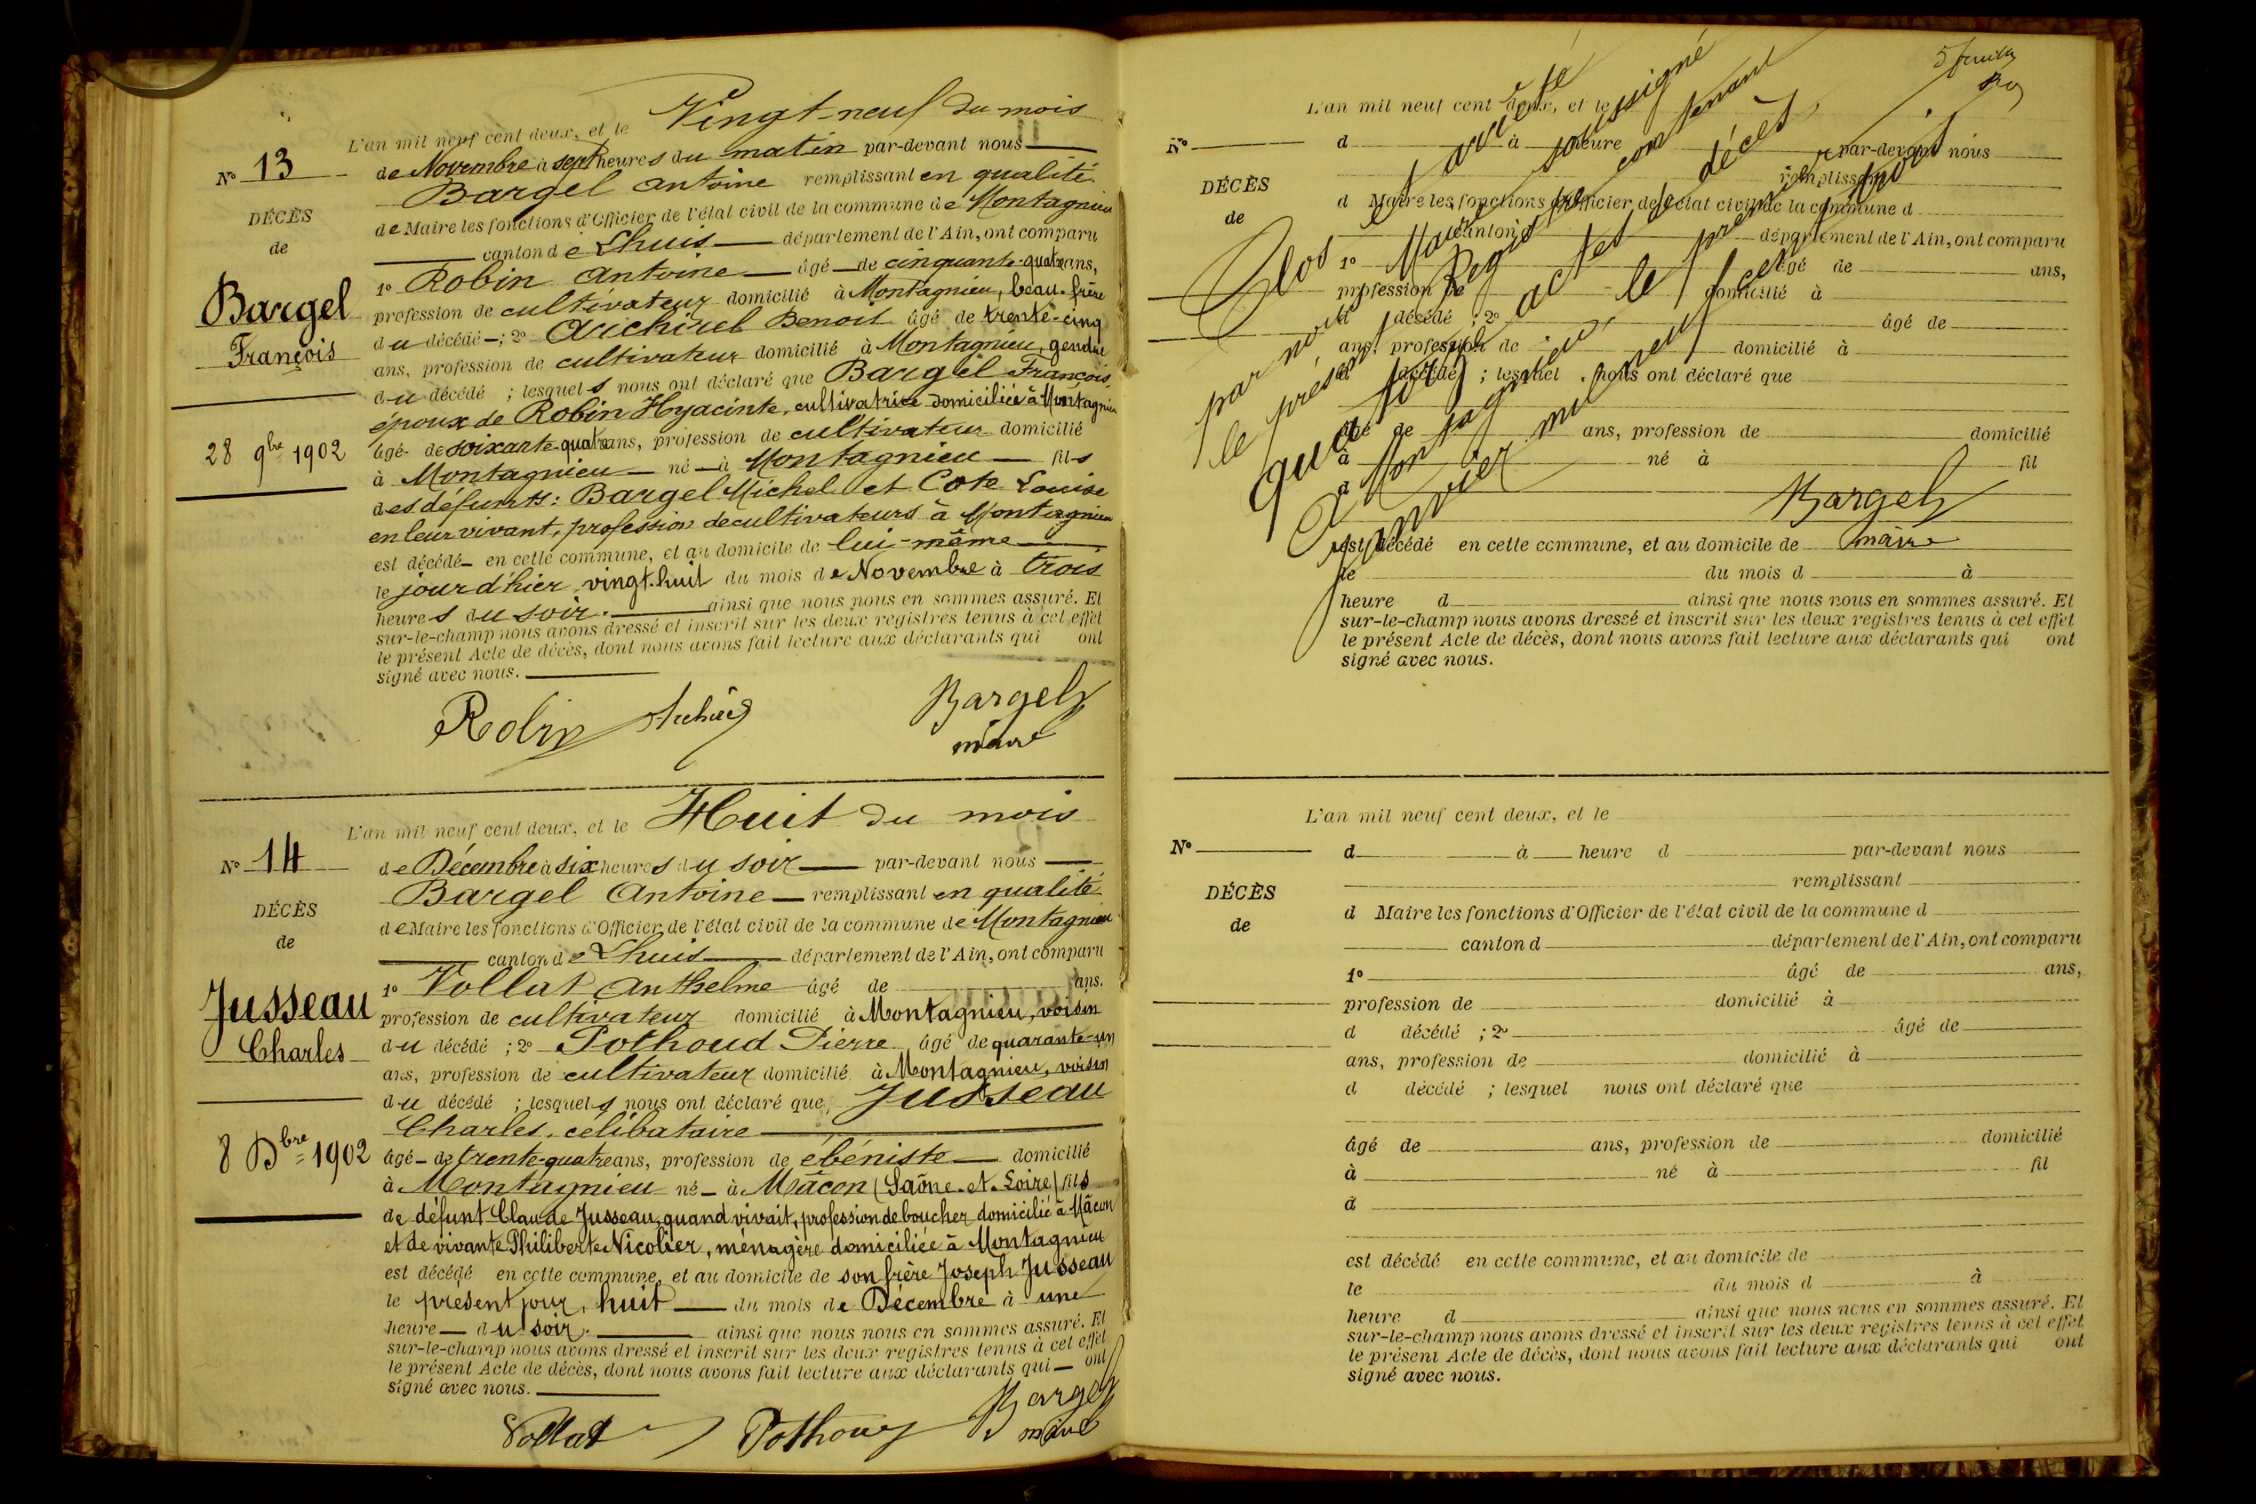 L'an mil neuf cent deux, et le Vingt-neuf du mois
N° 13
de Novembre à sept heures du matin par-devant nous
Bargel Antoine remplissant en qualité
DÉCÈS
de
de Maire les fonctions d'Officier de l'état civil de la commune de Montagnieu
canton de Lhuis département de l'Ain, ont comparu
1° Robin Antoine âgé de cinquante-quatre ans,
Bargel
François
profession de cultivateur domicilié à Montagnieu, beau-frère
du décédé ; 2° Benoit âgé de trente-cinq
ans, profession de cultivateur domicilié à Montagnieu, gendre
du décédé ; lesquels nous ont déclaré que Bargel François,
époux de Robin Hyacinte, cultivatrice domiciliée à Montagnieu
28 9bre 1902
âgé de soixante-quatre ans, profession de cultivateur domicilié
à Montagnieu né à Montagnieu fils
des défunts : Bargel Michel et Cote Louise
en leur vivant, profession de cultivateurs à Montagnieu
est décédé en cette commune, et au domicile de lui-même
le jour d'hier, vingt-huit du mois de Novembre à trois
heures du soir. ainsi que nous nous en sommes assuré. Et
sur-le-champ nous avons dressé et inscrit sur les deux registres tenus à cet effet
le présent Acte de décès, dont nous avons fait lecture aux déclarants qui ont
signé avec nous.
Robin Bargel
maire
L'an mil neuf cent deux, et le Huit du mois
N° 14
de Décembre à six heures du soir par-devant nous
Bargel Antoine remplissant en qualité
DÉCÈS
de
de Maire les fonctions d'Officier de l'état civil de la commune de Montagnieu
canton de Lhuis département de l'Ain, ont comparu
1° Vollat Anthelme âgé de ans.
Jusseau
Charles
profession de cultivateur domicilié à Montagnieu, voisin
du décédé ; 2° Pothoud Pierre âgé de quarante-un
ans, profession de cultivateur domicilié à Montagnieu, voisin
du décédé ; lesquels nous ont déclaré que Jusseau
Charles, célibataire
8 Dbre 1902
âgé de trente-quatre ans, profession de ébéniste domicilié
à Montagnieu né à Mâcon (Saône-et-Loire) fils
de défunt Claude Jusseau, quand vivait, profession de boucher domicilié à Mâcon
et de vivante Philiberte Nicolier, ménagère domiciliée à Montagnieu
est décédé en cette commune, et au domicile de son frère Joseph Jusseau
le présent jour, huit du mois de Décembre à une
heure du soir. ainsi que nous nous en sommes assuré. Et
sur-le-champ nous avons dressé et inscrit sur les deux registres tenus à cet effet
le présent Acte de décès, dont nous avons fait lecture aux déclarants qui ont
signé avec nous.
Vollat Pothoud Bargel
maire
L'an mil neuf cent deux, et le
N°
d à heure d par-devant nous
remplissant
DÉCÈS
de
d Maire les fonctions d'Officier de l'état civil de la commune d
canton d département de l'Ain, ont comparu
1° âgé de ans,
profession de domicilié à
d décédé ; 2° âgé de
ans, profession de domicilié à
d décédé ; lesquel nous ont déclaré que
âgé de ans, profession de domicilié
à né à fil
d
est décédé en cette commune, et au domicile de
le du mois d à
heure d ainsi que nous nous en sommes assuré. Et
sur-le-champ nous avons dressé et inscrit sur les deux registres tenus à cet effet
le présent Acte de décès, dont nous avons fait lecture aux déclarants qui ont
signé avec nous.
Clos et arrêté
par nous Maire soussigné
le présent Registre contenant
quatorze actes de décès,
A Montagnieu, le premier
Janvier mil neuf cent trois
Bargel
maire
L'an mil neuf cent deux, et le
N°
d à heure d par-devant nous
remplissant
DÉCÈS
de
d Maire les fonctions d'Officier de l'état civil de la commune d
canton d département de l'Ain, ont comparu
1° âgé de ans,
profession de domicilié à
d décédé ; 2° âgé de
ans, profession de domicilié à
d décédé ; lesquel nous ont déclaré que
âgé de ans, profession de domicilié
à né à fil
d
est décédé en cette commune, et au domicile de
le du mois d à
heure d ainsi que nous nous en sommes assuré. Et
sur-le-champ nous avons dressé et inscrit sur les deux registres tenus à cet effet
le présent Acte de décès, dont nous avons fait lecture aux déclarants qui ont
signé avec nous.